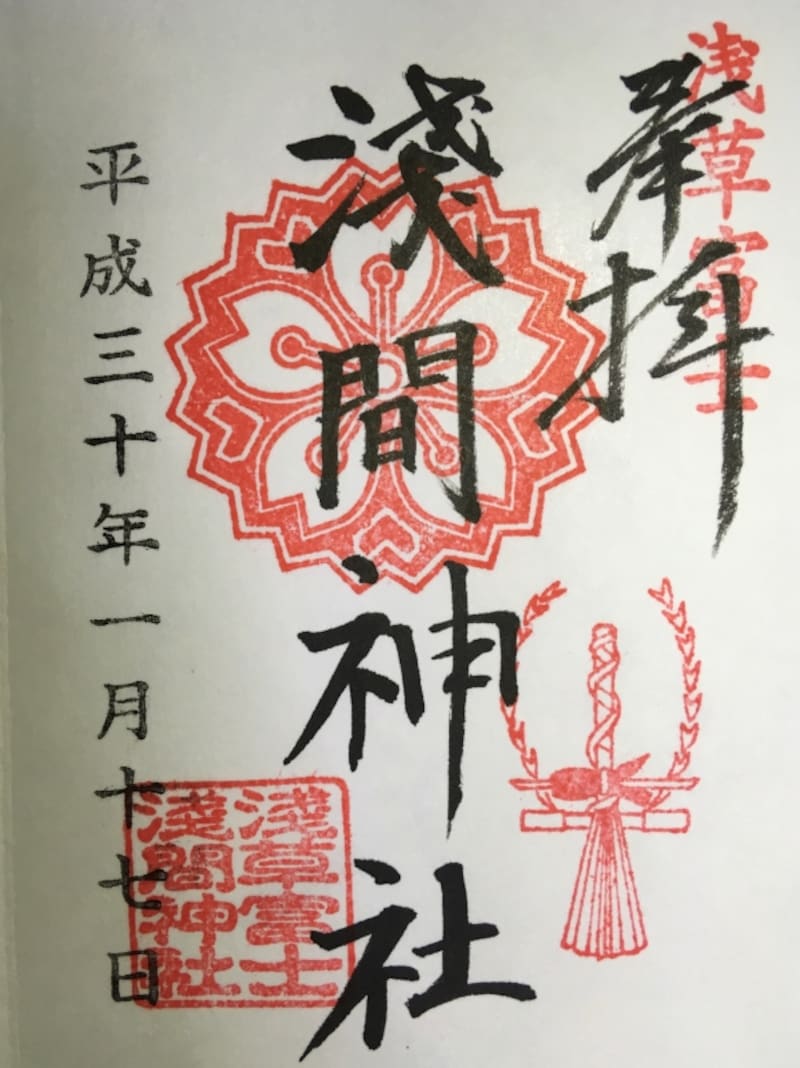 浅草富士
奉拝
淺間神社
平成三十年一月十七日
淺草富士
淺間神社